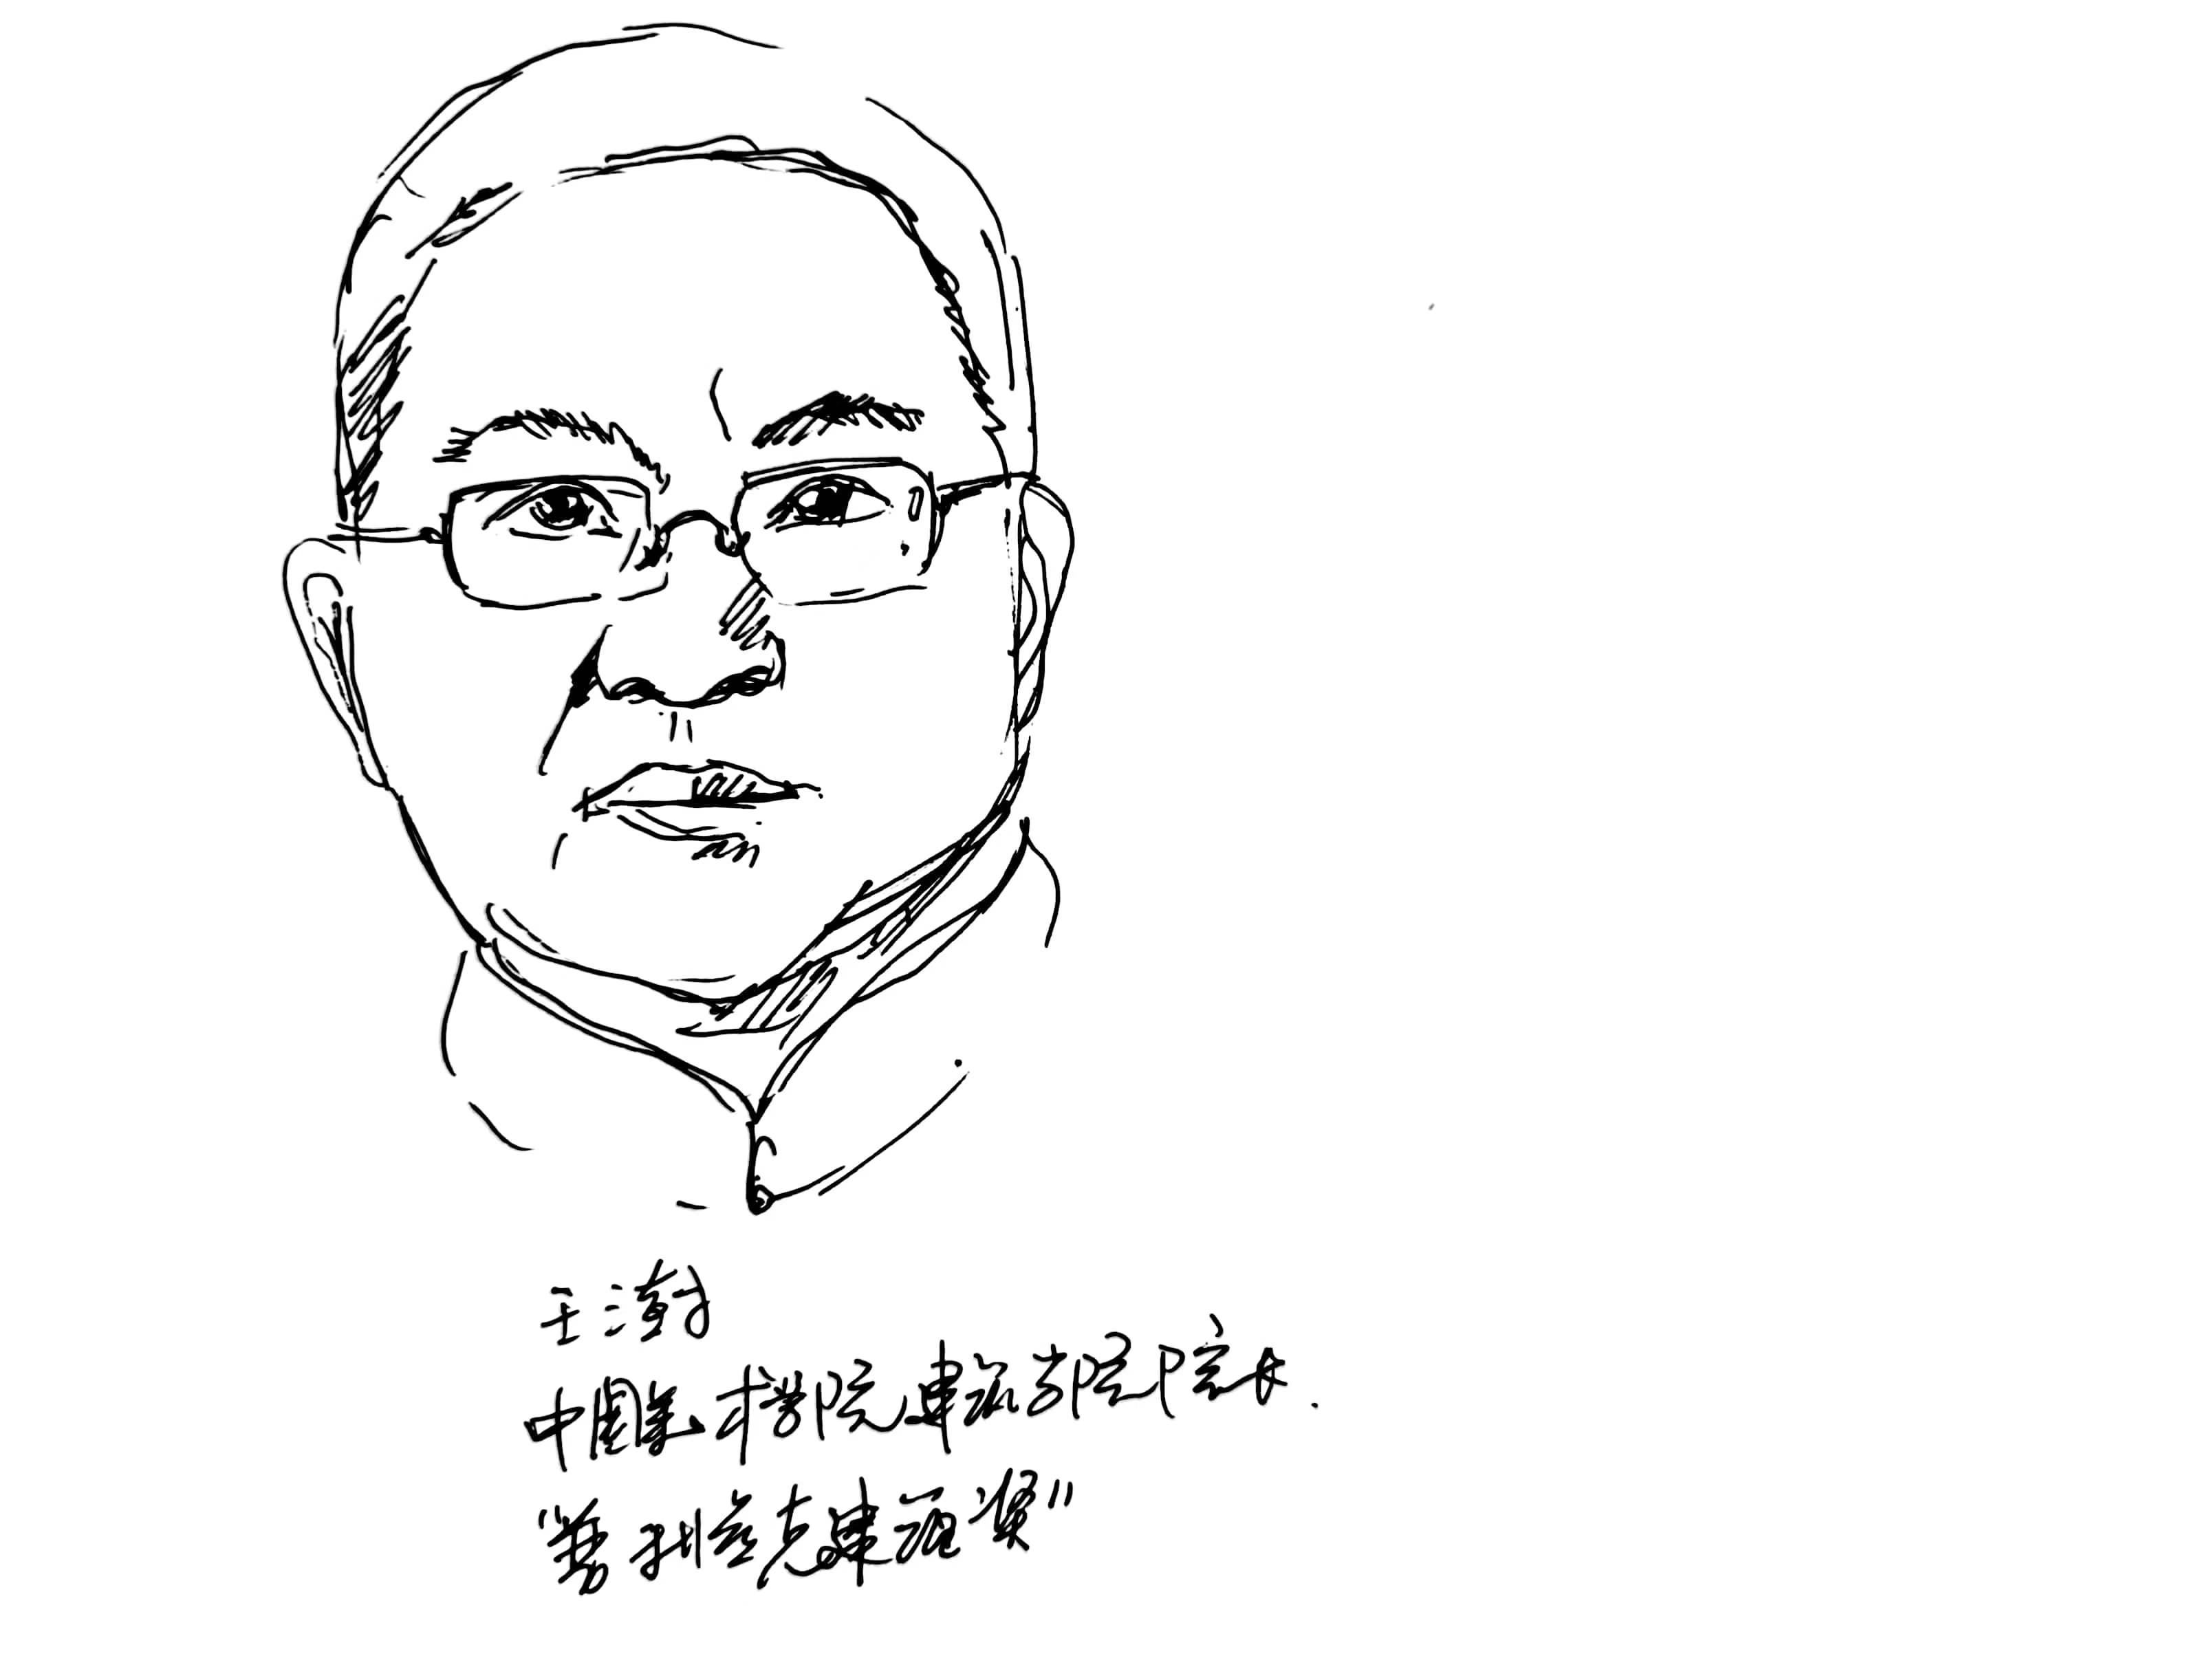 王澍
中国美术学院建筑学院院长.
"普利兹克建筑奖"